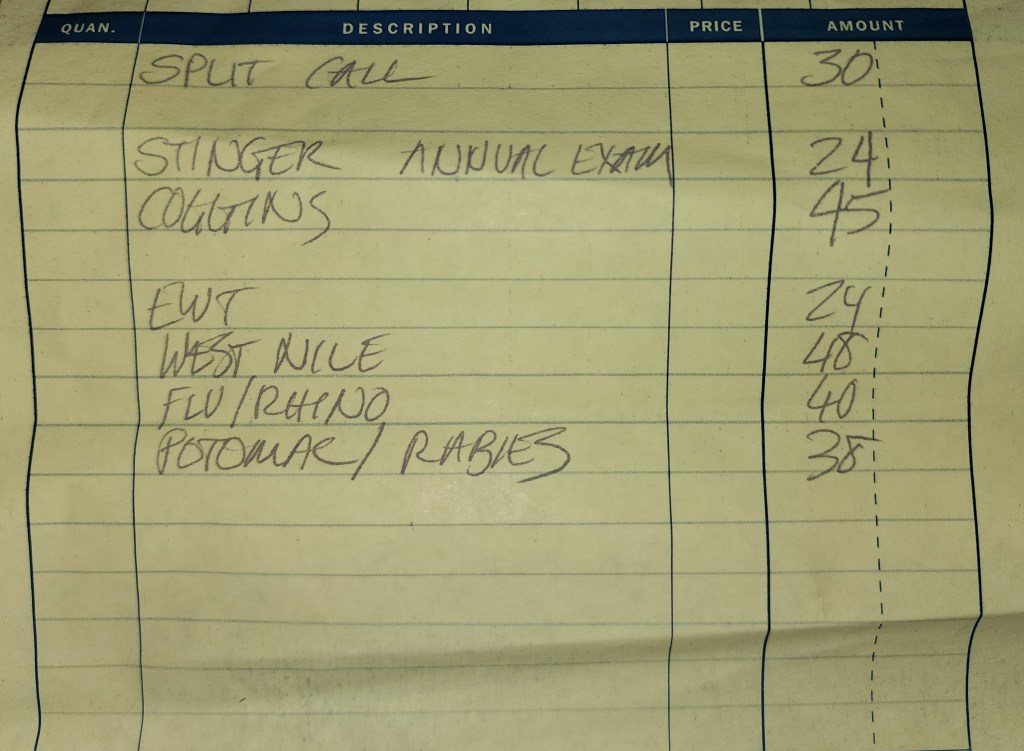 QUAN. DESCRIPTION PRICE AMOUNT
SPLIT CALL 30
STINGER ANNUAL EXAM 24
COGGINS 45
EWT 24
WEST NILE 48
FLU/RHINO 40
POTOMAC/RABIES 38